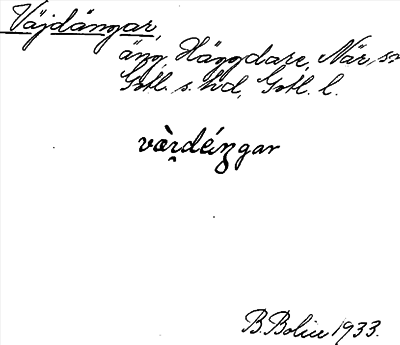 Väjdängar,
äng, Häggdare, När, sn
Gotl. s. hd, Gotl. l.
vàrdéngar
B. Bolin 1933.